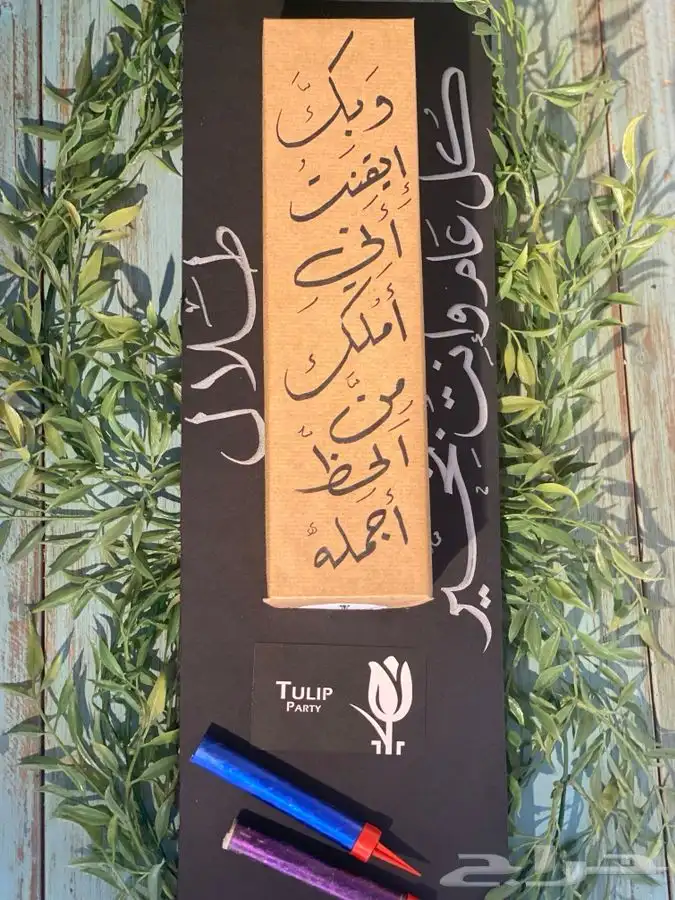 كل عام وإنت بخير
وبك
إيقنت
أني
أملك
من
الحظ
أجمله
طلال
TULIP
PARTY
حراج